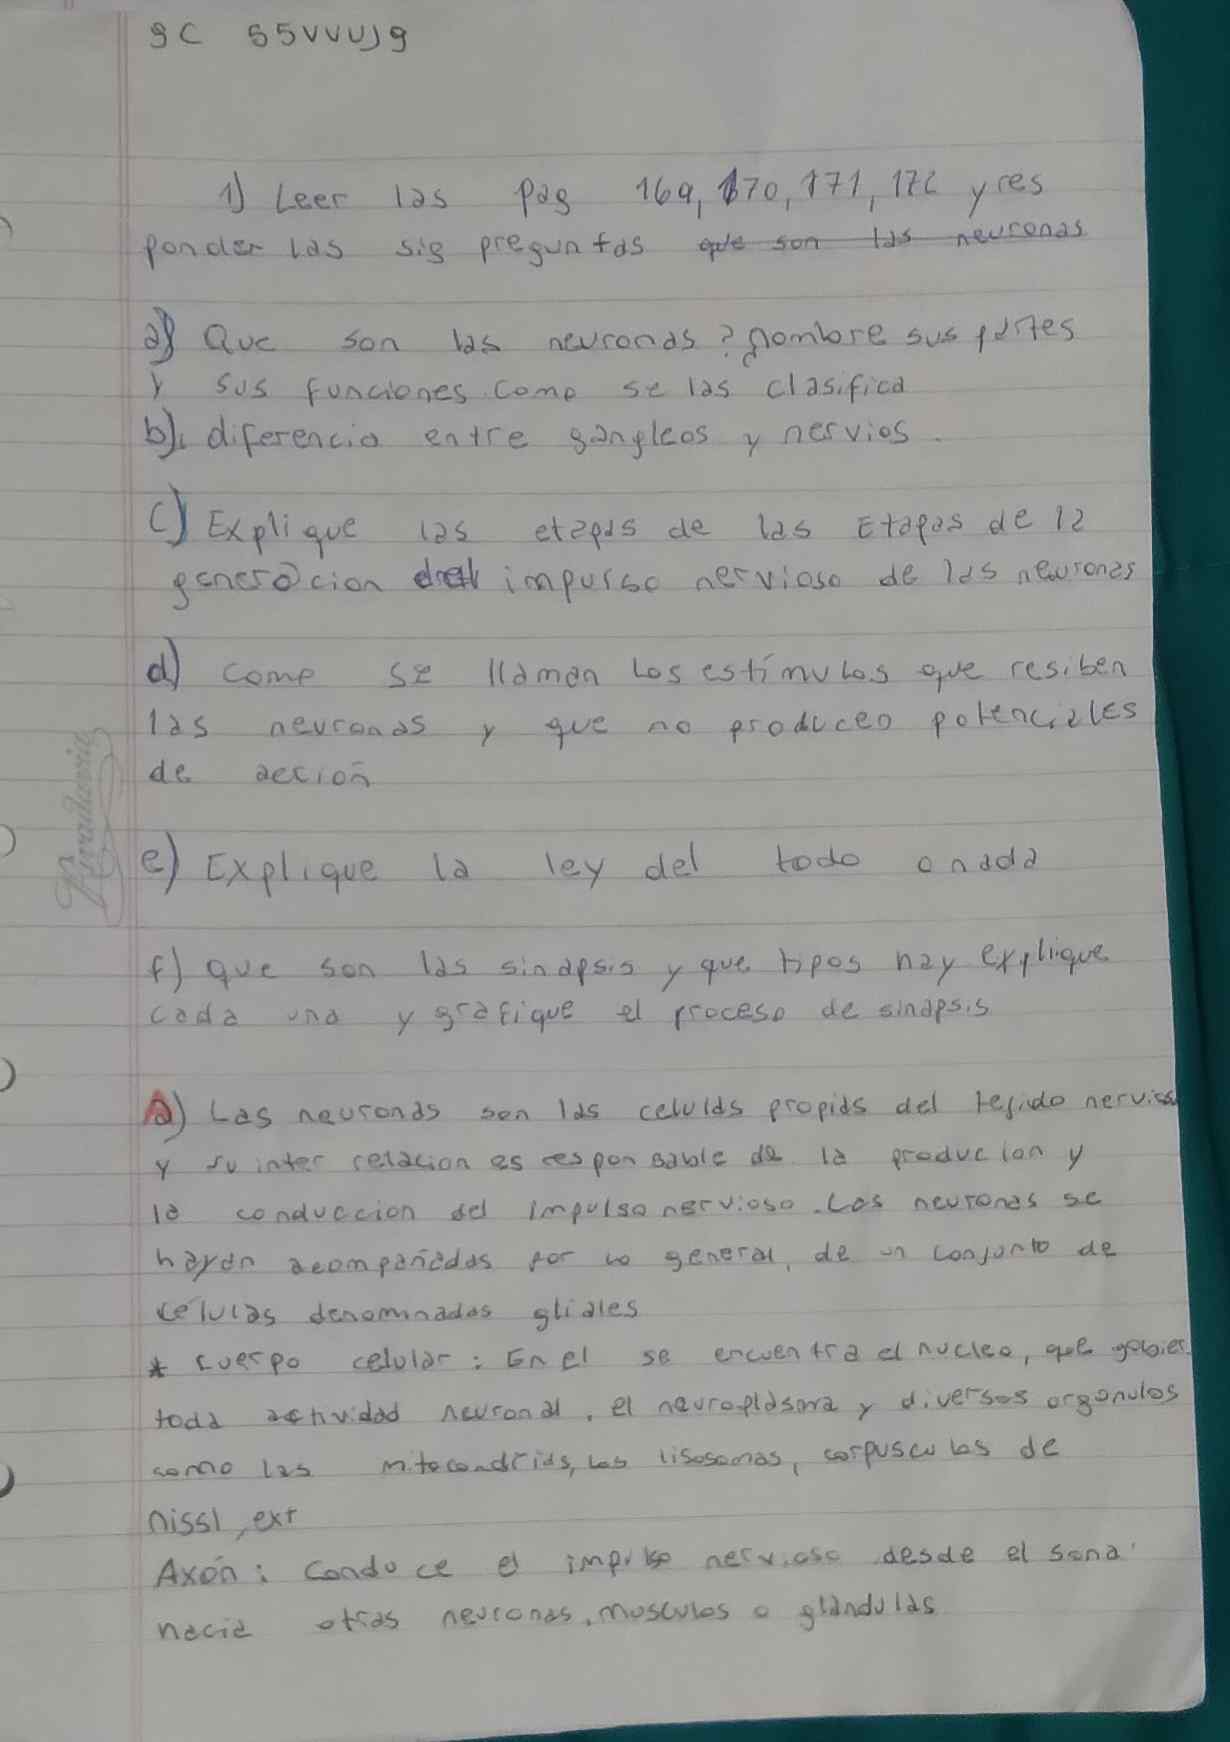 9C 55VVVUJ9
1) Leer las pag 169, 170, 171, 172 y res
ponder las sig preguntas que son las neuronas
a) Que son las neuronas? nombre sus partes
y sus funciones. Como se las clasifica
b) diferencia entre gangleos y nervios.
c) Explique las etapas de las Etapas de la
generacion del impulso nervioso de las neuronas
d) como se llaman los estímulos que resiben
las neuronas y que no producen potenciales
de acción
e) Explique la ley del todo o nada
f) que son las sinapsis y que tipos hay explique
cada una y grafique el proceso de sinapsis
Rivadavia
a) Las neuronas son las celulas propias del tejido nervioso
y su inter relacion es responsable de la producion y
la conduccion del impulso nervioso. Las neuronas se
hayan acompañadas por lo general, de un conjunto de
células denominadas gliales
* cuerpo celular: En el se encuentra el nucleo, que gobier.
toda actividad neuronal, el neuroplasma y diversos organulos
como las mitocondrias, los lisosomas, corpusculos de
nissl, ext
Axón: Conduce el impulso nervioso desde el soma
hacia otras neuronas, musculos o glándulas